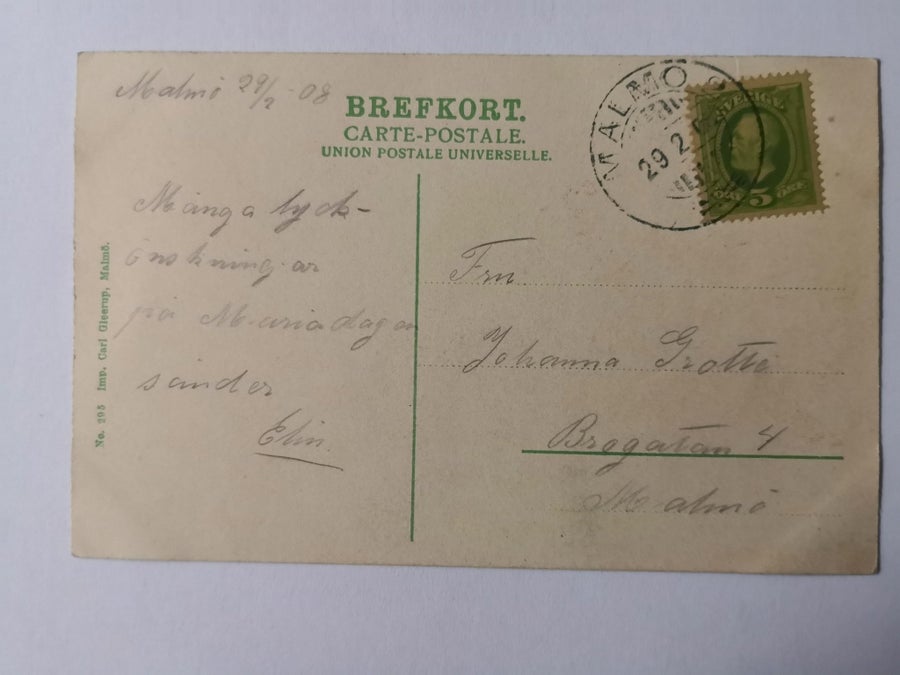 Malmö 29/2 08
BREFKORT.
CARTE-POSTALE.
UNION POSTALE UNIVERSELLE.
MALMÖ
29 2
SVERIGE
5 ÖRE
Många lyck-
önskningar
på Mariadagen
sänder
Elin.
Fru
Johanna Grotte
Brogatan 4
Malmö
No. 295 Imp. Carl Gleerup, Malmö.